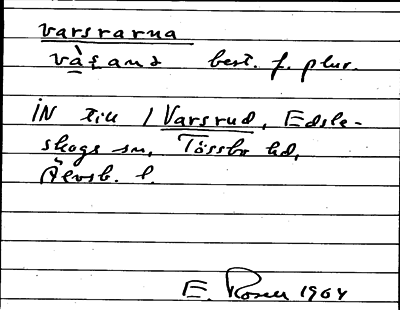 varsrarna
våṣanạ best. f. plur.
IN till / Varsrud, Edsle-
skogs sn, Tössbo hd,
Älvsb. l.
E. Rosen 1964